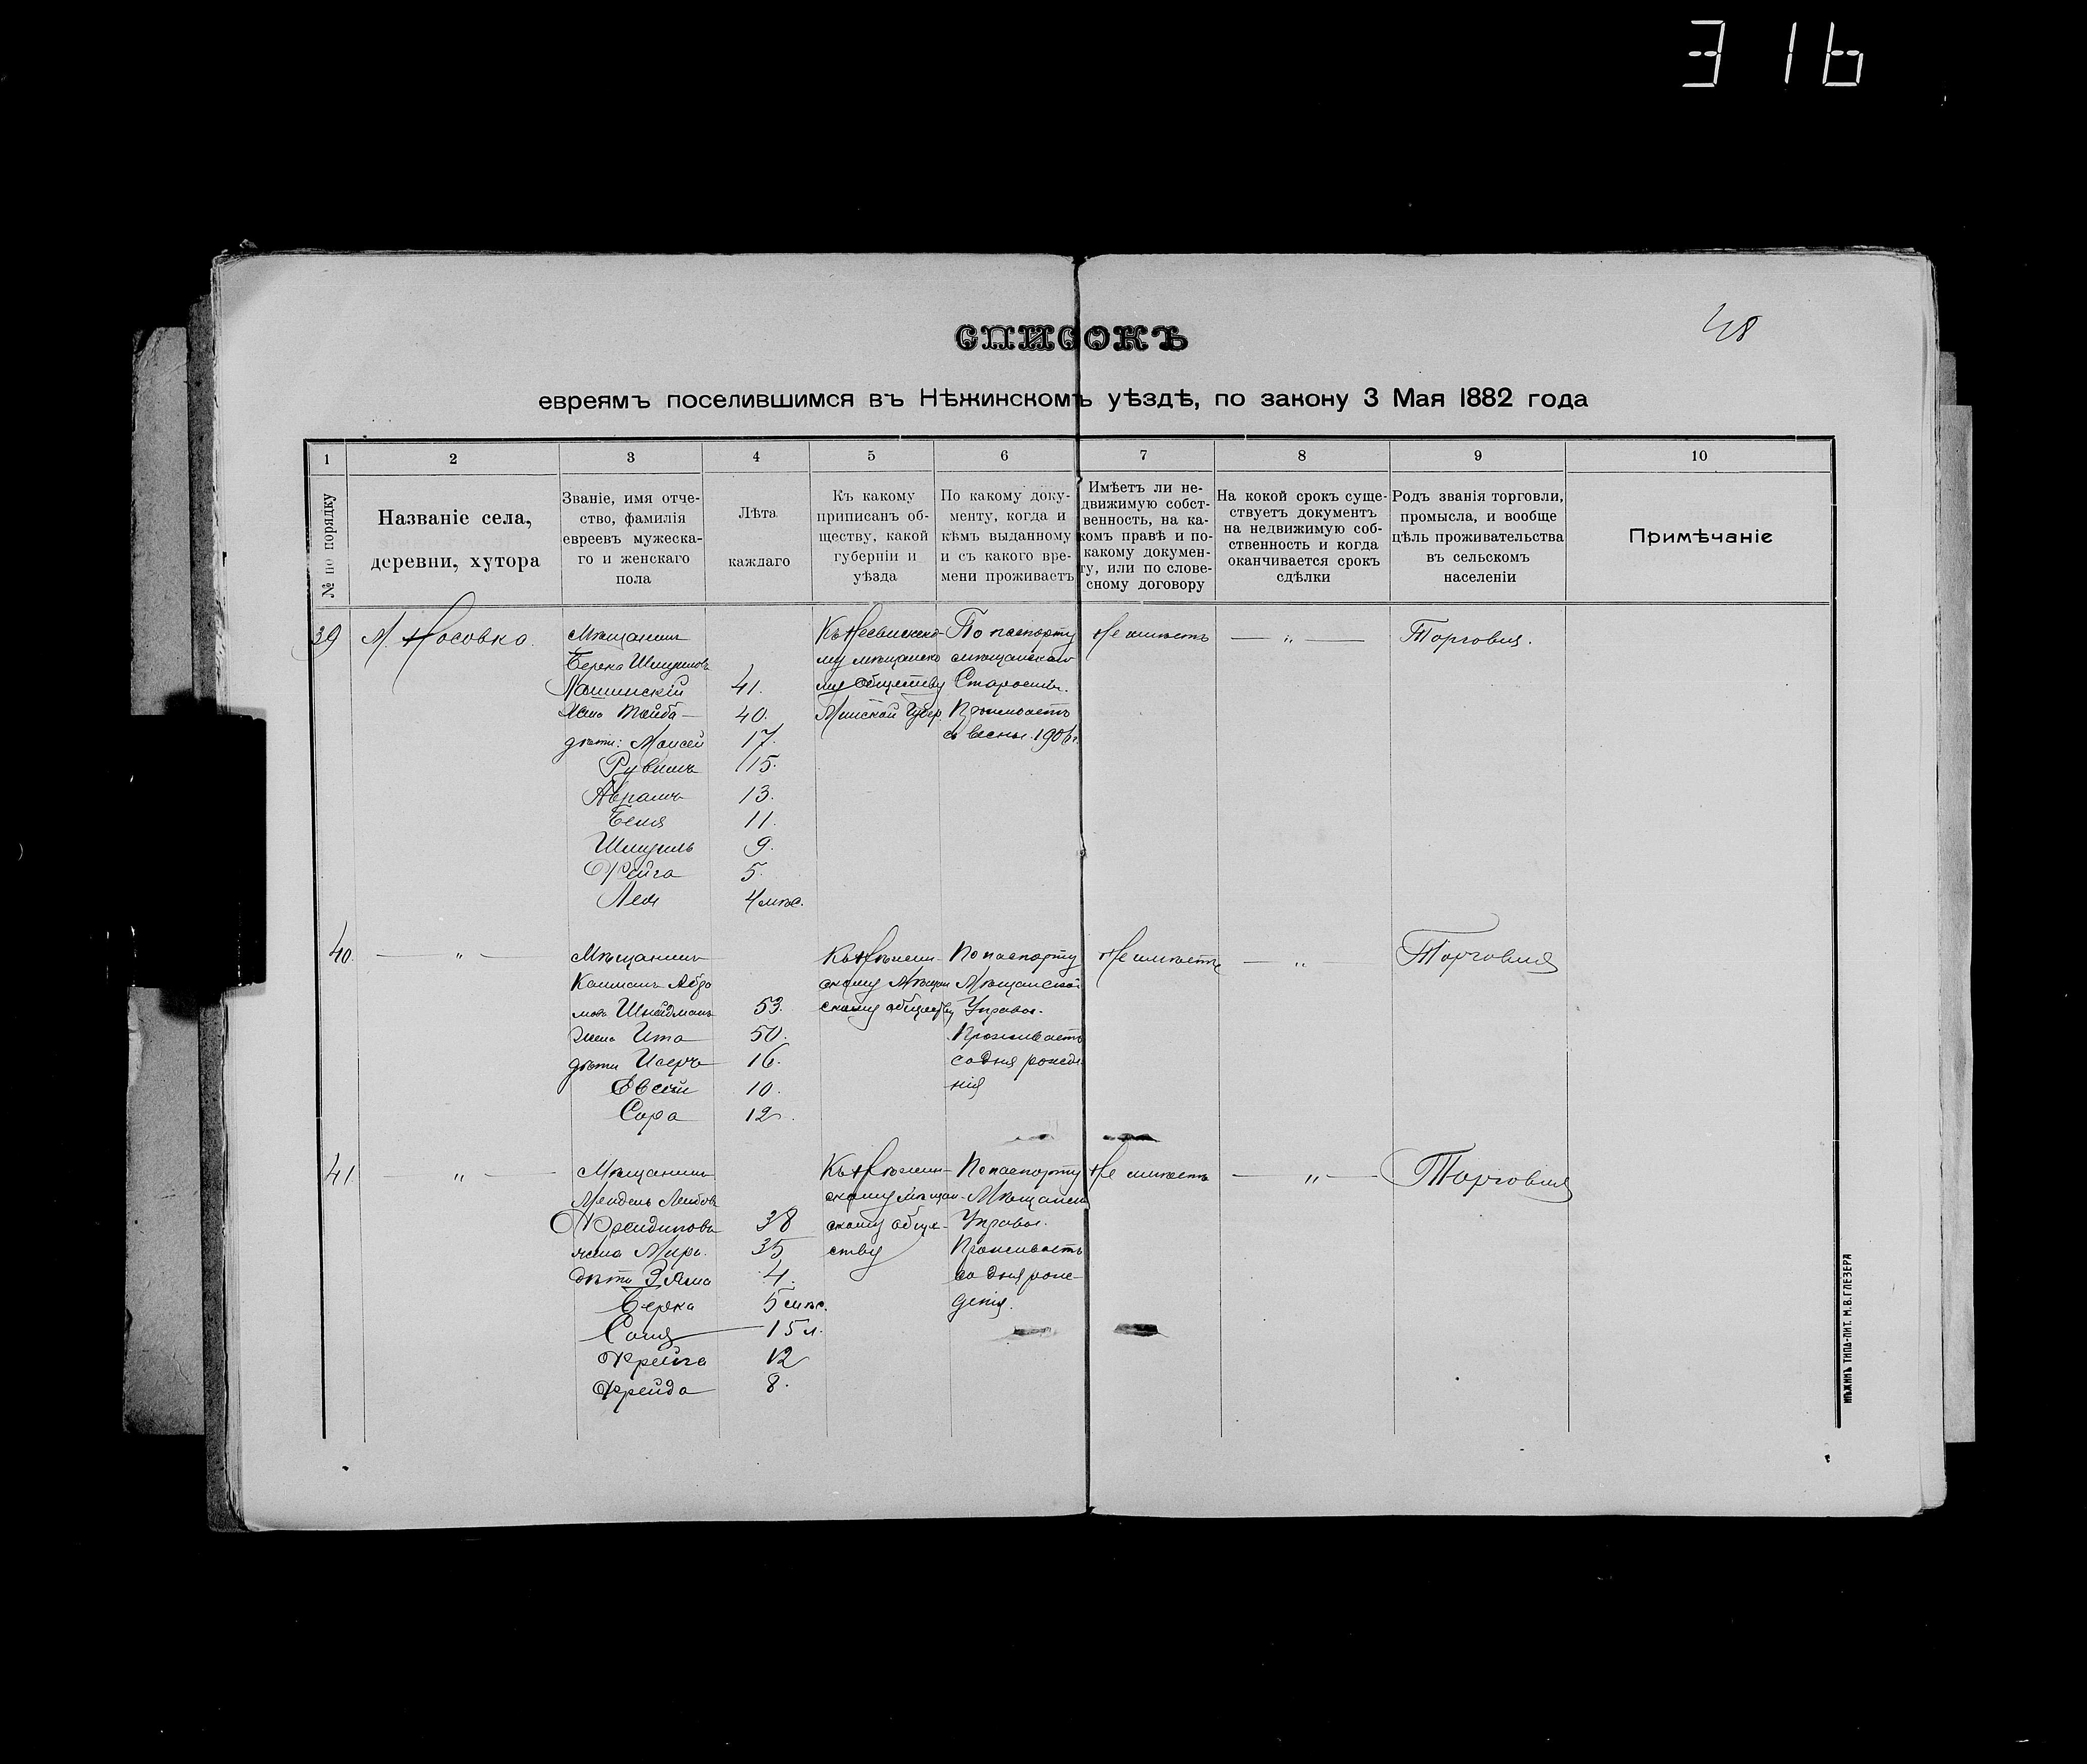 316
48
СПИСОКЪ
евреямъ поселившимся въ Нѣжинскомъ уѣздѣ, по закону 3 Мая 1882 года
1 2 3 4 5 6 7 8 9 10
№ по порядку
Названіе села,
деревни, хутора
Званіе, имя отче-
ство, фамилія
евреевъ мужеска-
го и женскаго
пола
Лѣта
каждаго
Къ какому
приписанъ об-
ществу, какой
губерніи и
уѣзда
По какому доку-
менту, когда и
кѣмъ выданному
и съ какого вре-
мени проживаетъ
Имѣетъ ли не-
движимую собст-
венность, на ка-
комъ правѣ и по-
какому докумен-
ту, или по слове-
сному договору
На кокой срокъ суще-
ствуетъ документъ
на недвижимую соб-
ственность и когда
оканчивается срокъ
сдѣлки
Родъ званія торговли,
промысла, и вообще
цѣль проживательства
въ сельскомъ
населеніи
Примѣчаніе
39 М. Носовка.
Мѣщанинъ
Берка Шмуиловъ
41.
жена Тайба — 40.
дѣти: Моисей 17.
Рувимъ 15.
Абрамъ 13.
Беня 11.
Шмуиль 9.
Фейга 5.
Лея 4 мѣс.
му мѣщанско
му обществу
Минской Губер
По паспорту
мѣщанскаго
Старосты.
Проживаетъ
съ весны 1906 г.
Не имѣетъ — „ — Торговля.
40. — „ —
Мѣщанинъ
Калманъ Абра
мовъ Шнейдманъ 53.
жена Ита 50.
дѣти Исеръ 16.
Евсей 10.
Сора 12.
Къ Нѣжин-
скому Мѣщан
скому обществу
По паспорту
Мѣщанской
Управы.
Проживаетъ
со дня рожде
нія
Не имѣетъ — „ — Торговля
41. — „ —
Мѣщанинъ
Мендель Лейбовъ
38
жена Мира. 35
дѣти Зяма 4.
Берка 5 мѣс.
Соня — 15 л.
Фрейга 12
Фрейда 8.
Къ Нѣжин-
скому мѣщан-
скому обще-
ству
По паспорту
Мѣщанск
Управы.
Проживаетъ
со дня рож-
денія.
Не имѣетъ — „ — Торговля
НѢЖИНЪ ТИПО-ЛИТ. М. В. ГЛЕЗЕРА